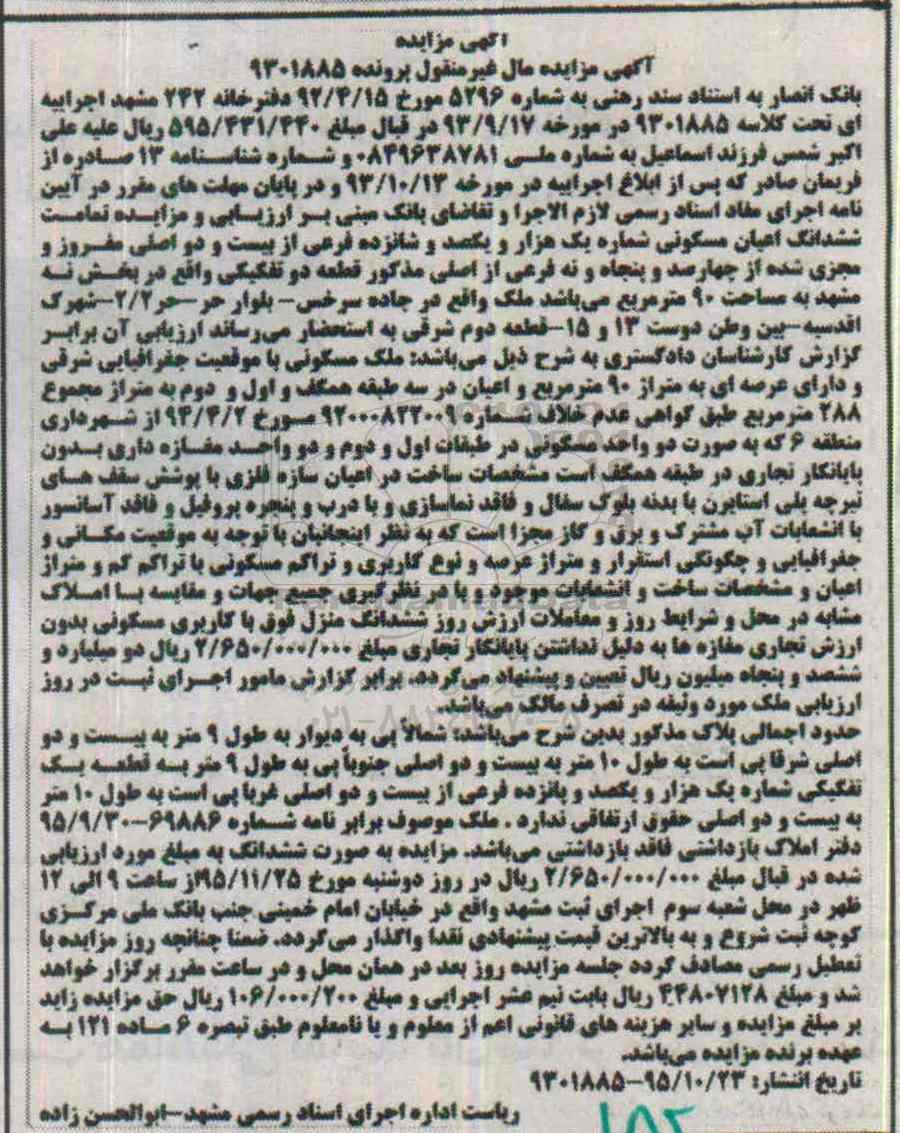 آگهی مزایده
آگهی مزایده مال غیرمنقول پرونده ۹۳۰۱۸۸۵
بانک انصار به استناد سند رهنی به شماره ۵۲۹۶ مورخ ۹۲/۴/۱۵ دفترخانه ۲۴۲ مشهد اجراییه
ای تحت کلاسه ۹۳۰۱۸۸۵ در مورخه ۹۳/۹/۱۷ در قبال مبلغ ۵۹۵/۴۳۱/۴۴۰ ریال علیه علی
اکبر شمس فرزند اسماعیل به شماره ملی ۰۸۴۹۶۳۸۷۸۱ و شماره شناسنامه ۱۳ صادره از
فریمان صادر که پس از ابلاغ اجراییه در مورخه ۹۳/۱۰/۱۳ و در پایان مهلت های مقرر در آیین
نامه اجرای مفاد اسناد رسمی لازم الاجرا و تقاضای بانک مبنی بر ارزیابی و مزایده تمامت
ششدانگ اعیان مسکونی شماره یک هزار و یکصد و شانزده فرعی از بیست و دو اصلی مفروز و
مجزی شده از چهارصد و پنجاه و نه فرعی از اصلی مذکور قطعه دو تفکیکی واقع در بخش نه
مشهد به مساحت ۹۰ مترمربع می‌باشد ملک واقع در جاده سرخس- بلوار حر –حر۲/۲-شهرک
اقدسیه-بین وطن دوست ۱۳ و ۱۵-قطعه دوم شرقی به استحضار می‌رساند ارزیابی آن برابر
گزارش کارشناسان دادگستری به شرح ذیل می‌باشد: ملک مسکونی با موقعیت جغرافیایی شرقی
و دارای عرصه ای به متراژ ۹۰ مترمربع و اعیان در سه طبقه همکف و اول و دوم به متراژ مجموع
۲۸۸ مترمربع طبق گواهی عدم خلاف شماره ۹۲۰۰۰۸۲۲۰۰۹ مورخ ۹۲/۴/۲ از شهرداری
منطقه ۶ که به صورت دو واحد مسکونی در طبقات اول و دوم و دو واحد مغازه داری بدون
پایانکار تجاری در طبقه همکف است مشخصات ساخت در اعیان سازه فلزی با پوشش سقف های
تیرچه پلی استایرن با بدنه بلوک سفال و فاقد نماسازی و با درب و پنجره پروفیل و فاقد آسانسور
با انشعابات آب مشترک و برق و گاز مجزا است که به نظر اینجانبان با توجه به موقعیت مکانی و
جغرافیایی و چگونگی استقرار و متراژ عرصه و نوع کاربری و تراکم مسکونی با تراکم کم و متراژ
اعیان و مشخصات ساخت و انشعابات موجود و با در نظرگیری جمیع جهات و مقایسه با املاک
مشابه در محل و شرایط روز و معاملات ارزش روز ششدانگ منزل فوق با کاربری مسکونی بدون
ارزش تجاری مغازه ها به دلیل نداشتن پایانکار تجاری مبلغ ۲/۶۵۰/۰۰۰/۰۰۰ ریال دو میلیارد و
ششصد و پنجاه میلیون ریال تعیین و پیشنهاد می‌گردد. برابر گزارش مامور اجرای ثبت در روز
ارزیابی ملک مورد وثیقه در تصرف مالک می‌باشد.
حدود اجمالی پلاک مذکور بدین شرح می‌باشد: شمالا پی به دیوار به طول ۹ متر به بیست و دو
اصلی شرقا پی است به طول ۱۰ متر به بیست و دو اصلی جنوباً پی به طول ۹ متر به قطعه یک
تفکیکی شماره یک هزار و یکصد و پانزده فرعی از بیست و دو اصلی غربا پی است به طول ۱۰ متر
به بیست و دو اصلی حقوق ارتفاقی ندارد . ملک موصوف برابر نامه شماره ۶۹۸۸۶-۹۵/۹/۳۰
دفتر املاک بازداشتی فاقد بازداشتی می‌باشد. مزایده به صورت ششدانگ به مبلغ مورد ارزیابی
شده در قبال مبلغ ۲/۶۵۰/۰۰۰/۰۰۰ ریال در روز دوشنبه مورخ ۹۵/۱۱/۲۵از ساعت ۹ الی ۱۲
ظهر در محل شعبه سوم اجرای ثبت مشهد واقع در خیابان امام خمینی جنب بانک ملی مرکزی
کوچه ثبت شروع و به بالاترین قیمت پیشنهادی نقدا واگذار می‌گردد. ضمنا چنانچه روز مزایده با
تعطیل رسمی مصادف گردد جلسه مزایده روز بعد در همان محل و در ساعت مقرر برگزار خواهد
شد و مبلغ ۴۴۸۰۷۱۲۸ ریال بابت نیم عشر اجرایی و مبلغ ۱۰۶/۰۰۰/۲۰۰ ریال حق مزایده زاید
بر مبلغ مزایده و سایر هزینه های قانونی اعم از معلوم و یا نامعلوم طبق تبصره ۶ ماده ۱۲۱ به
عهده برنده مزایده می‌باشد.
تاریخ انتشار: ۹۵/۱۰/۲۳-۹۳۰۱۸۸۵
ریاست اداره اجرای اسناد رسمی مشهد-ابوالحسن زاده